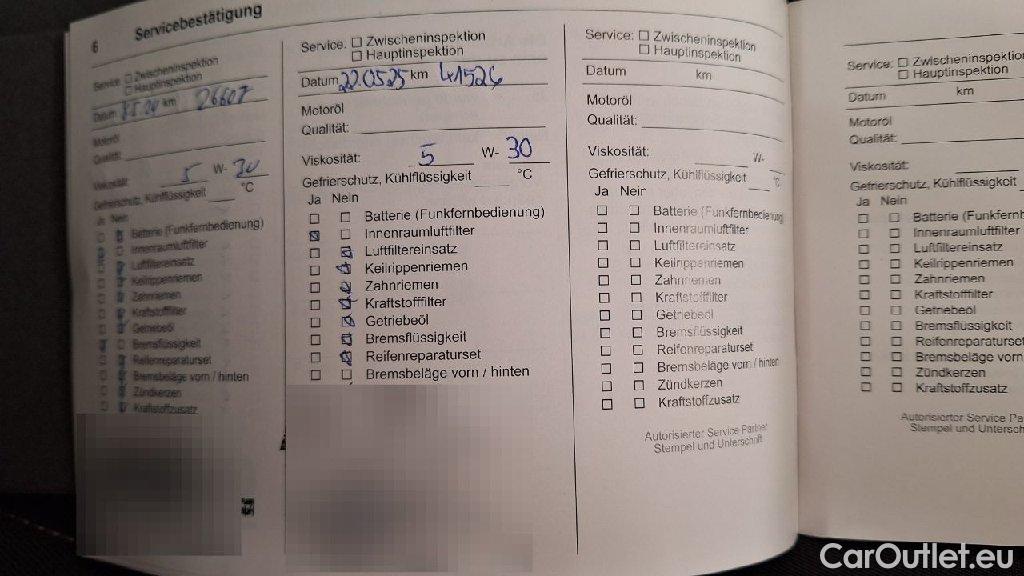 6 Servicebestätigung
Service: □ Zwischeninspektion
□ Hauptinspektion
Datum km 26607
Motoröl
Qualität:
Viskosität: 5 W- 30
Gefrierschutz, Kühlflüssigkeit °C
Ja Nein
Batterie (Funkfernbedienung)
Innenraumluftfilter
Luftfiltereinsatz
Keilrippenriemen
Zahnriemen
Kraftstofffilter
Getriebeöl
Bremsflüssigkeit
Reifenreparaturset
Bremsbeläge vorn / hinten
Zündkerzen
Kraftstoffzusatz
Service: □ Zwischeninspektion
□ Hauptinspektion
Datum 22.05.25 km 41526
Motoröl
Qualität:
Viskosität: 5 W- 30
Gefrierschutz, Kühlflüssigkeit °C
Ja Nein
Batterie (Funkfernbedienung)
Innenraumluftfilter
Luftfiltereinsatz
Keilrippenriemen
Zahnriemen
Kraftstofffilter
Getriebeöl
Bremsflüssigkeit
Reifenreparaturset
Bremsbeläge vorn / hinten
Service: □ Zwischeninspektion
□ Hauptinspektion
Datum km
Motoröl
Qualität:
Viskosität: W-
Gefrierschutz, Kühlflüssigkeit °C
Ja Nein
Batterie (Funkfernbedienung)
Innenraumluftfilter
Luftfiltereinsatz
Keilrippenriemen
Zahnriemen
Kraftstofffilter
Getriebeöl
Bremsflüssigkeit
Reifenreparaturset
Bremsbeläge vorn / hinten
Zündkerzen
Kraftstoffzusatz
Autorisierter Service Partner
Stempel und Unterschrift
Service: □ Zwischeninspektion
□ Hauptinspektion
Datum km
Motoröl
Qualität:
Viskosität:
Gefrierschutz, Kühlflüssigkeit
Ja Nein
Batterie (Funkfernbed
Innenraumluftfilter
Luftfiltereinsatz
Keilrippenriemen
Zahnriemen
Kraftstofffilter
Getriebeöl
Bremsflüssigkeit
Reifenreparaturset
Bremsbeläge vorn / hinten
Zündkerzen
Kraftstoffzusatz
Autorisierter Service Pa
Stempel und Untersch
CarOutlet.eu